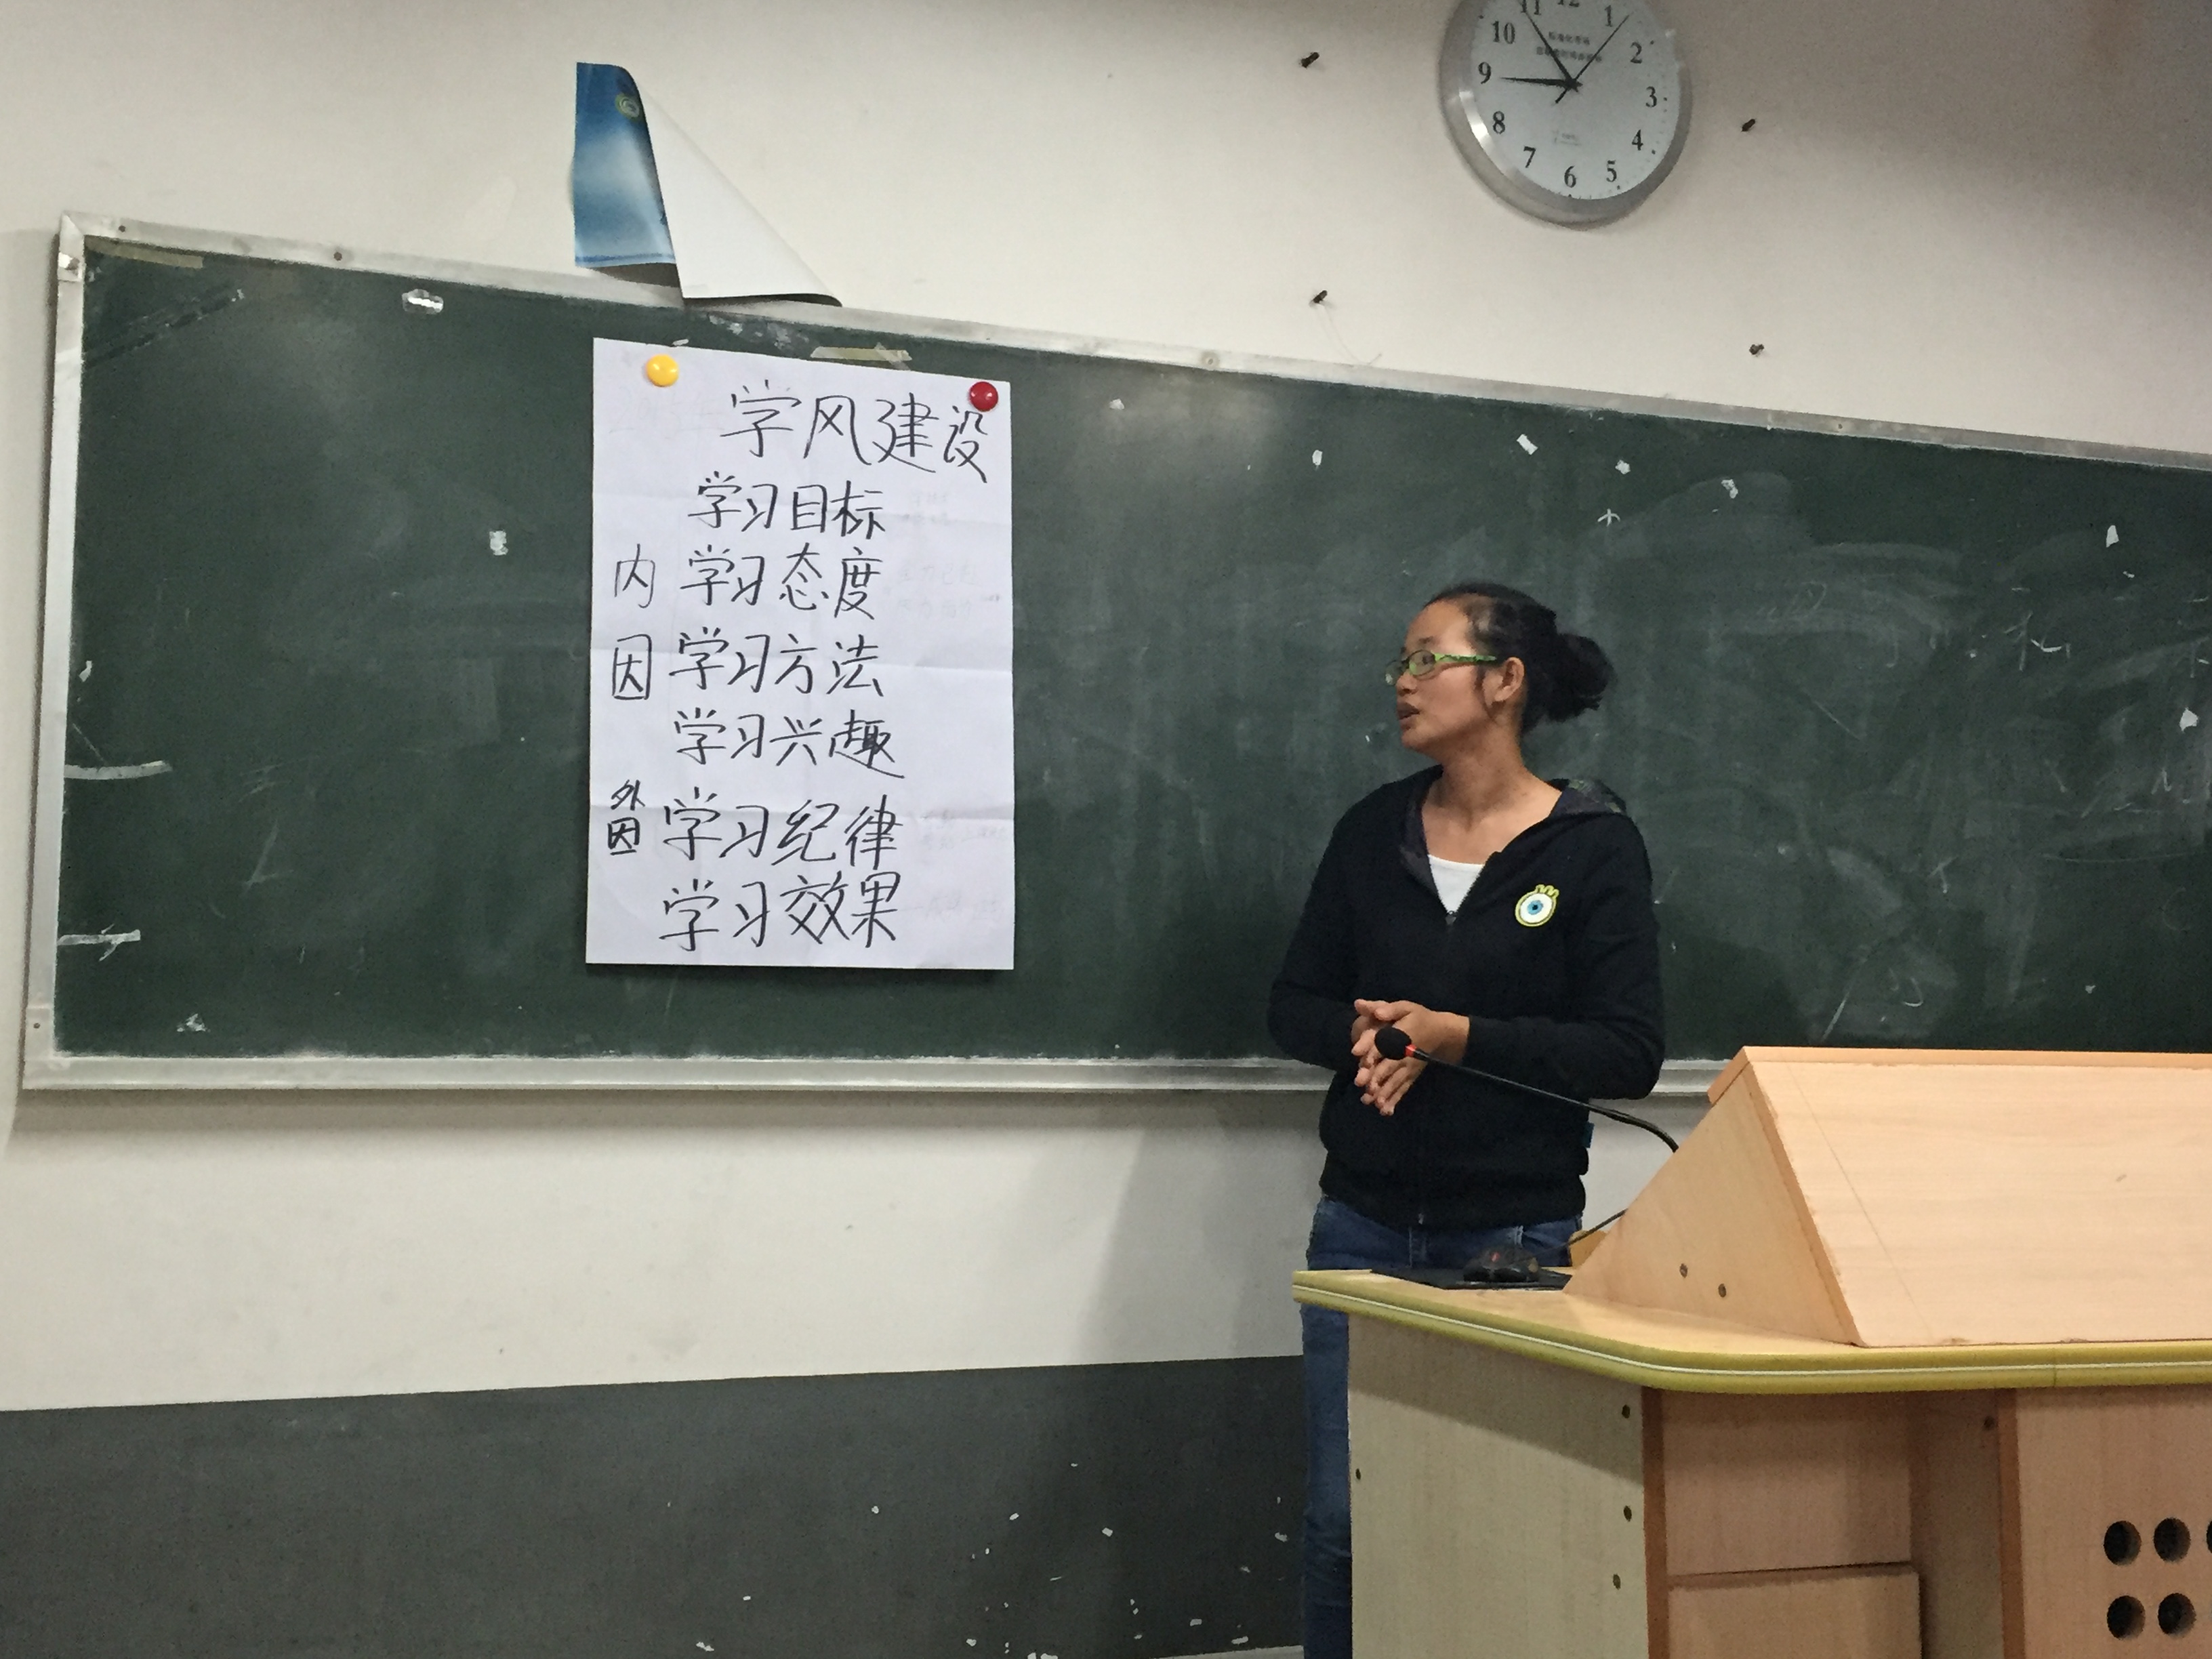 学风建设
学习目标
内 学习态度
因 学习方法
学习兴趣
外因 学习纪律
学习效果
11 12 1
10 2
9 3
8 4
7 6 5